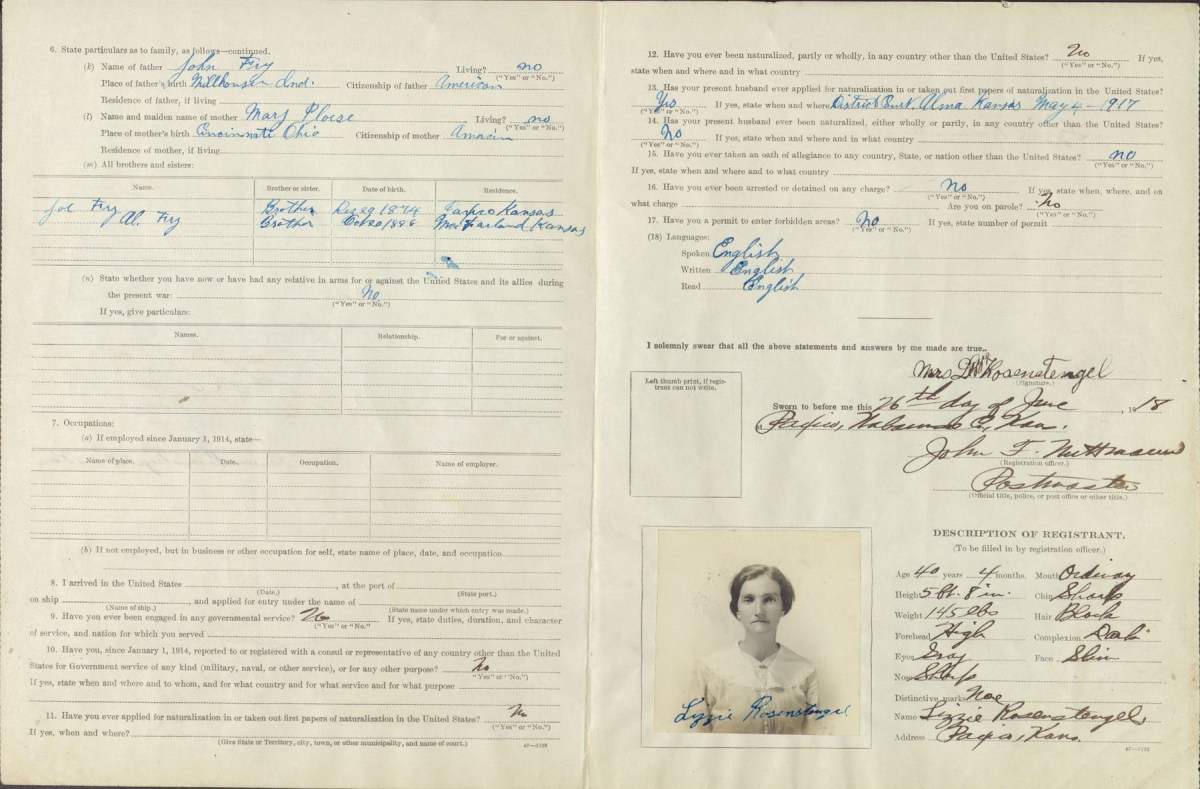 6. State particulars as to family, as follows—continued.
(k) Name of father John Fry Living? no
("Yes" or "No.")
Place of father's birth Millhousen Ind. Citizenship of father American
Residence of father, if living
(l) Name and maiden name of mother Mary Ploese Living? no
("Yes" or "No.")
Place of mother's birth Cincinnate Ohio Citizenship of mother
Residence of mother, if living
(m) All brothers and sisters:
Name. Brother or sister. Date of birth. Residence.
Joe Fry Brother Dec 29 1874 Paxico Kansas
Al. Fry Brother Oct 20 Mc Farland Kansas
(n) State whether you have now or have had any relative in arms for or against the United States and its allies during
the present war: No
("Yes" or "No.")
If yes, give particulars:
Names. Relationship. For or against.
7. Occupations:
(a) If employed since January 1, 1914, state—
Name of place. Date. Occupation. Name of employer.
(b) If not employed, but in business or other occupation for self, state name of place, date, and occupation
8. I arrived in the United States , at the port of
(Date.) (State port.)
on ship , and applied for entry under the name of
(Name of ship.) (State name under which entry was made.)
9. Have you ever been engaged in governmental service? No If yes, state duties, duration, and character
("Yes" or "No.")
of service, and nation for which you served
10. Have you, since January 1, 1914, reported to or registered with a consul or representative of any country other than the United
States for Government service of any kind (military, naval, or other service), or for any other purpose? No
("Yes" or "No.")
If yes, state when and where and to whom, and for what country and for what service and for what purpose
11. Have you ever applied for naturalization or taken out first papers of naturalization in the United States? No
("Yes" or "No.")
If yes, when and where?
(Give State or Territory, city, town, or other municipality, and name of court.)
12. Have you ever been naturalized, partly or wholly, in any country other than the United States? No If yes,
("Yes" or "No.")
state when and where and in what country
13. Has your present husband ever applied for naturalization in or taken out first papers of naturalization in the United States?
Yes If yes, state when and where District Court. Alma Kansas May 4 - 1917
("Yes" or "No.")
14. Has your present husband ever been naturalized, either wholly or partly, in any country other than the United States?
No If yes, state when and where and in what country
("Yes" or "No.")
15. Have you ever taken an oath of allegiance to any country, State, or nation other than the United States? no
("Yes" or "No.")
If yes, state when and where and to what country
16. Have you ever been arrested or detained on any charge? No If yes, state when, where, and on
("Yes" or "No.")
what charge Are you on parole? No
("Yes" or "No.")
17. Have you a permit to enter forbidden areas? No If yes, state number of permit
("Yes" or "No.")
(18) Languages:
Spoken English
Written English
Read English
I solemnly swear that all the above statements and answers by me made are true.
Mrs Rosenstengel
(Signature.)
Left thumb print, if regis-
trant can not write.
Sworn to before me this 26th day of June , 1918
at Paxico, Wabaunsee Co, Kan.
John F.
(Registration officer.)
Postmaster
(Official title, police, or post office or other title.)
DESCRIPTION OF REGISTRANT.
(To be filled in by registration officer.)
Age 40 years 4 months. Mouth Ordinary
Height 5 ft. 8 in. Chin Sharp
Weight 145 lbs Hair Black
Forehead High Complexion Dark
Eyes Gray Face Slim
Nose Sharp
Distinctive marks None
Name Lizzie Rosenstengel
Address Paxico, Kans.
Lizzie Rosenstengel